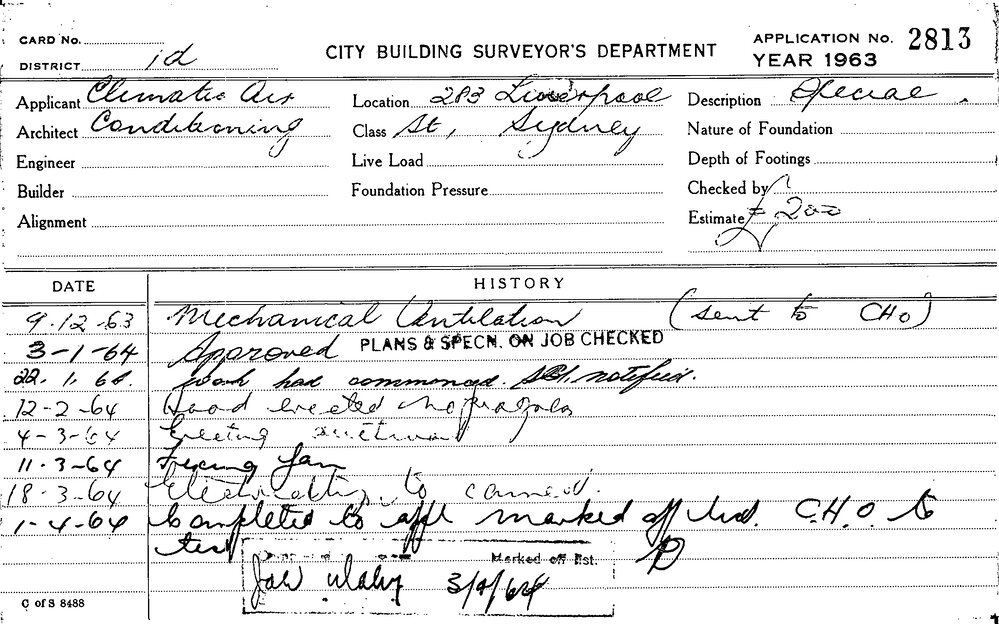 CARD No.
DISTRICT
CITY BUILDING SURVEYOR'S DEPARTMENT
APPLICATION No. 2813
YEAR 1963
Applicant Climatic Air
Location 283 Liverpool
Description Special
Architect Conditioning
Class St, Sydney
Nature of Foundation
Engineer
Live Load
Depth of Footings
Builder
Foundation Pressure
Checked by
Alignment
Estimate £200
DATE HISTORY
9.12-63 Mechanical Ventilation (sent to CHO)
3-1-64 Approved PLANS & SPECN. ON JOB CHECKED
22.1.64. work had commenced. notified.
12-2-64 Hood erected no progress
4-3-64 Erecting
11.3-64 Fixing fan
18-3-64 to connect.
1-4-64 Completed to appl marked off list. C.H.O. to
test
Marked off list.
3/4/64
C of S 8488